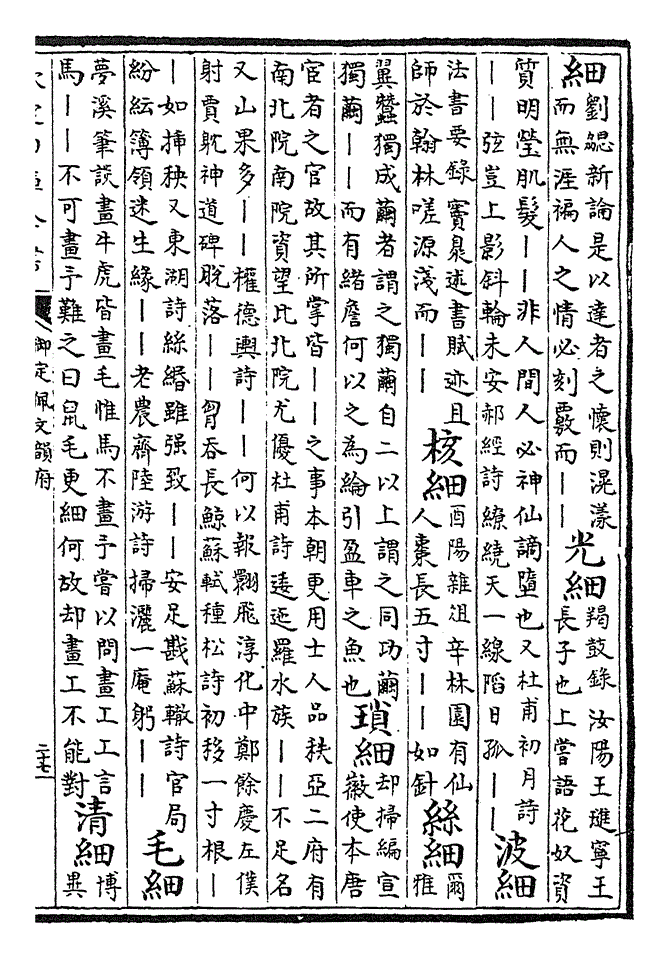 細劉勰新論是以達者之懷則滉漾
而無涯褊人之情必刻覈而丨丨
光細羯鼓錄汝陽王璡寧王
長子也上嘗語花奴資
質明瑩肌髮丨丨非人間人必神仙謫墮也又杜甫初月詩
丨丨弦豈上影斜輪未安郝經詩繚繞天一線陷日孤丨丨
波細
法書要錄竇臮述書賦迹且
師於翰林嗟源淺而丨丨
核細酉陽雜俎辛林園有仙
人棗長五寸丨丨如針
絲細爾
雅
翼蠶獨成繭者謂之獨繭自二以上謂之同功繭
獨繭丨丨而有緒詹何以之為綸引盈車之魚也
瑣細却掃編宣
徽使本唐
宦者之官故其所掌皆丨丨之事本朝更用士人品秩亞二府有
南北院南院資望比北院尤優杜甫詩逶迤羅水族丨丨不足名
又山果多丨丨權德輿詩丨丨何以報翾飛淳化中鄭餘慶左僕
射賈耽神道碑脫落丨丨胷吞長鯨蘇軾種松詩初移一寸根丨
丨如揷秧又東湖詩絲緡雖强致丨丨安足戡蘇轍詩官局
紛紜簿領迷生緣丨丨老農齊陸游詩掃灑一庵躬丨丨
毛細
夢溪筆談畫牛虎皆畫毛惟馬不畫予嘗以問畫工工言
馬丨丨不可畫予難之曰鼠毛更細何故却畫工不能對
清細博
異
御定佩文韻府
二十七